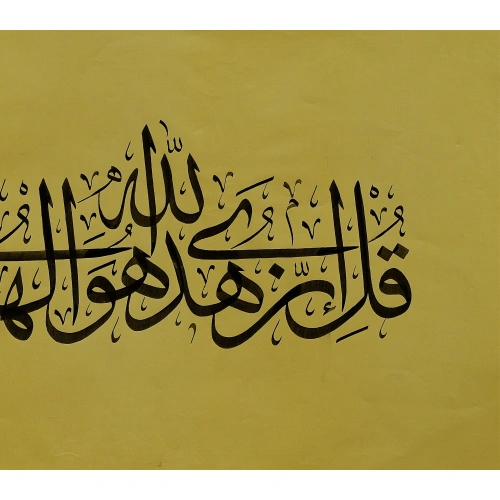 قُلْ إِنَّ هُدَى اللّٰهِ هُوَ